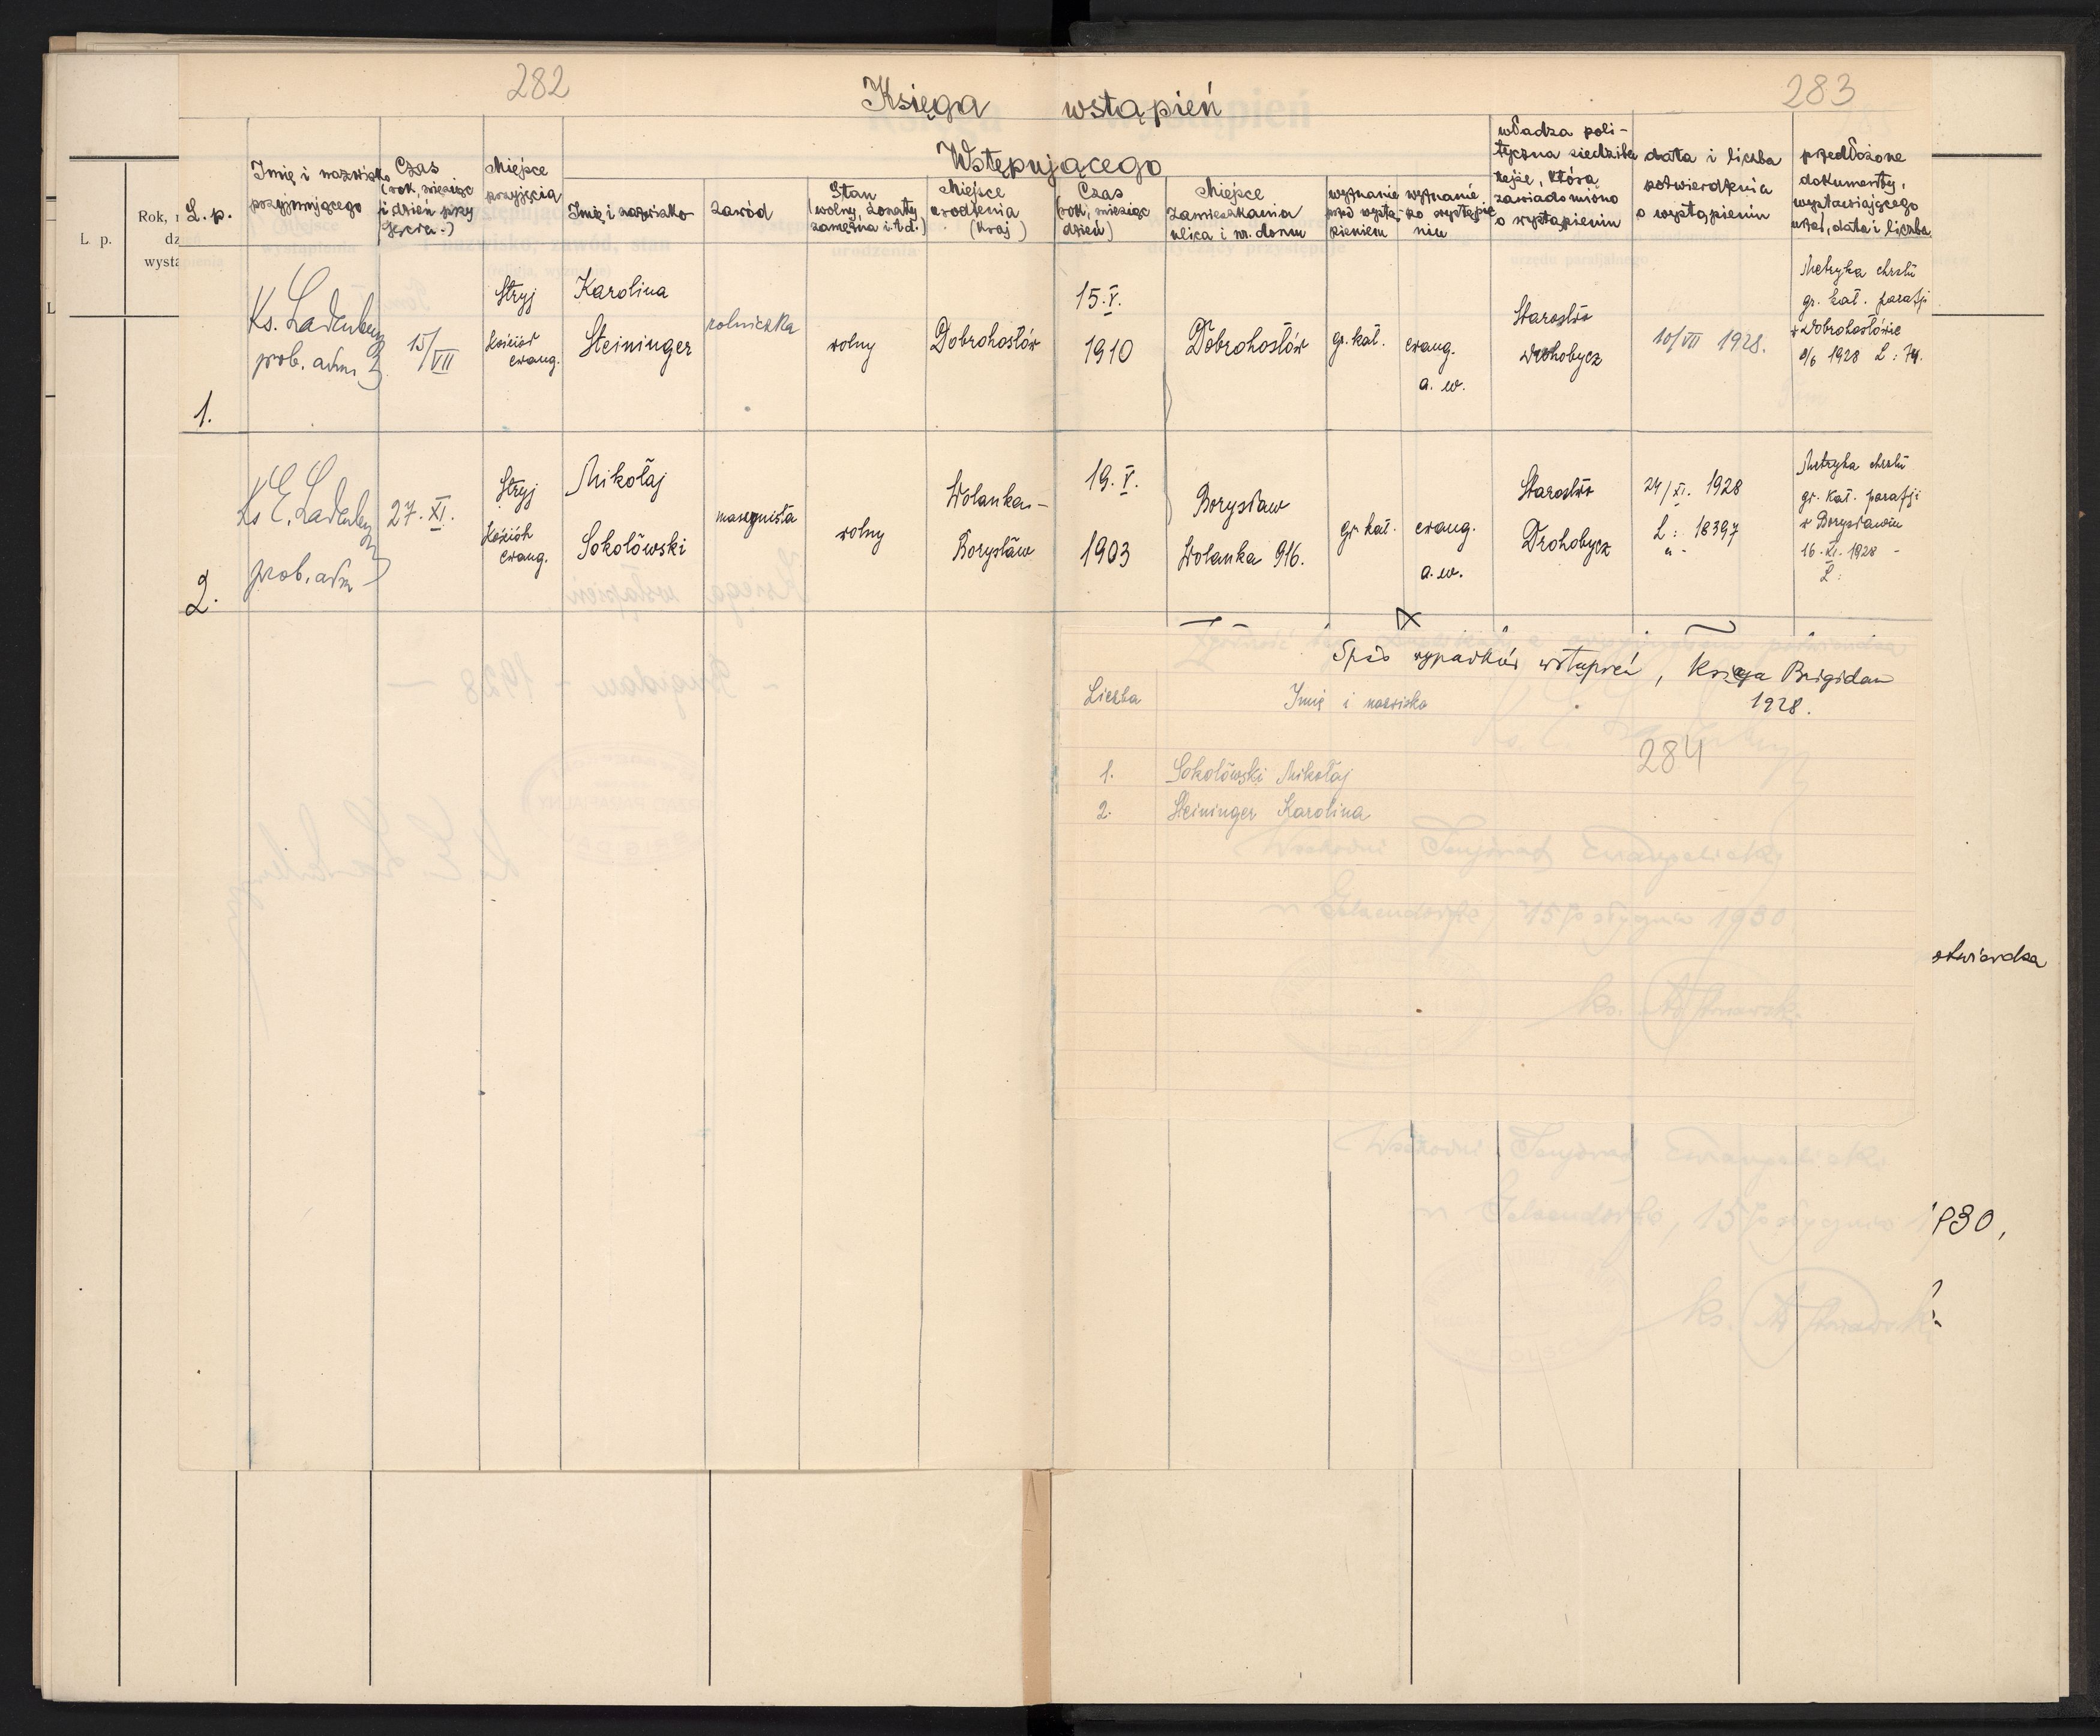 282
283
Księga wstąpień
Wstępującego
L. p.
Rok, 
dz
wysta
L. p.
Imię i nazwisko
przyjmującego
Czas
(rok, miesiąc
i dzień przy
jęcia.)
Miejsce
przyjęcia
Imię i nazwisko
zawód
Stan
(wolny, żonaty,
zamężna i.t.d.)
Miejsce
urodzenia
(kraj)
Czas
(rok, miesiąc
dzień)
Miejsce
zamieszkania
ulica i nr. domu
wyznanie
przed wystą-
pieniem
wyznanie
po wystąpie
niu
władza poli-
tyczna siedziba
tejże, którą
zawiadomiono
o wystąpieniu
data i liczba
potwierdzenia
o wystąpieniu
przedłożone
dokumenty,
wystawiającego
urząd, data i liczba
1.
Ks. Ladenberger
prob. adm.
15/VII
Stryj
kościół
ewang.
Karolina
Steininger
rolniczka
wolny
Dobrohostów
15.V.
1910
Dobrohostów
gr. kat.
ewang.
a. w.
Starostwo
Drohobycz
10/VII 1928.
Metryka chrztu
gr. kat. parafji
w Dobrohostówie
9/6 1928 L: 74.
2.
Ks E. Ladenberger
prob. adm
27. XI.
Stryj
kościół
ewang.
Mikołaj
Sokołówski
maszynista
wolny
Wolanka-
Borysław
19. V.
1903
Borysław
Wolanka 916.
gr. kat.
ewang.
a. w.
Starostwo
Drohobycz
24/XI. 1928
L: 18397
Metryka chrztu
gr. kat. parafji
w Borysławiu
16. XI. 1928 -
L:
Spis wypadków wstąpień, Księga Brigidau
1928.
Liczba
Imię i nazwisko
284
1. Sokołówski Mikołaj
2. Steininger Karolina
Wschodni Senjorat Ewangelicki
w Gelsendorfie, 15go stycznia 1930.
otwierdza
Wschodni Senjorat Ewangelicki
w Gelsendorfie, 15go stycznia 1930,
ks.